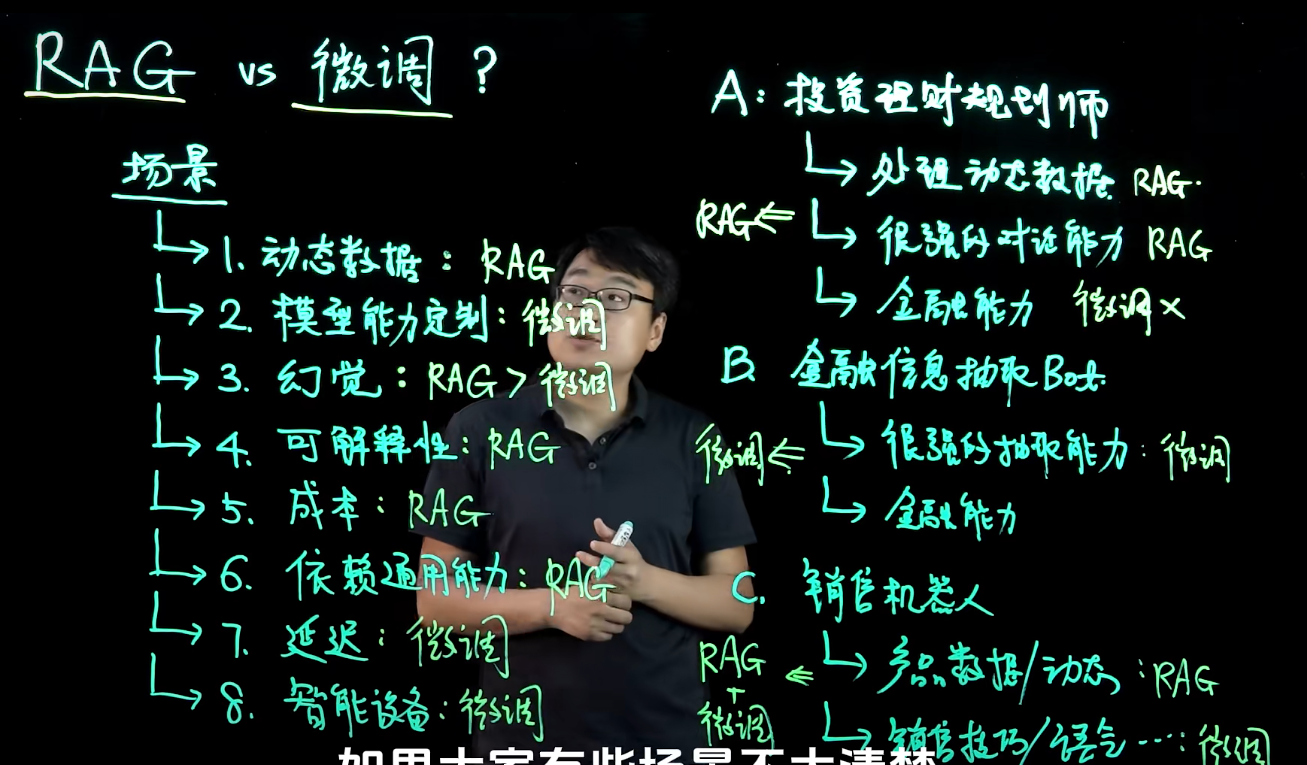 RAG vs 微调 ?
场景
1. 动态数据: RAG
2. 模型能力定制: 微调
3. 幻觉: RAG > 微调
4. 可解释性: RAG
5. 成本: RAG
6. 依赖通用能力: RAG
7. 延迟: 微调
8. 智能设备: 微调
A: 投资理财规划师
处理动态数据 RAG.
RAG ⇐ 很强的对话能力 RAG
金融能力 微调 ×
B. 金融信息抽取Bot.
微调 ⇐ 很强的抽取能力: 微调
金融能力
C. 销售机器人
RAG + 微调 ⇐ 产品数据/动态: RAG
销售技巧/语气…: 微调
如果大家有些场景不太清楚